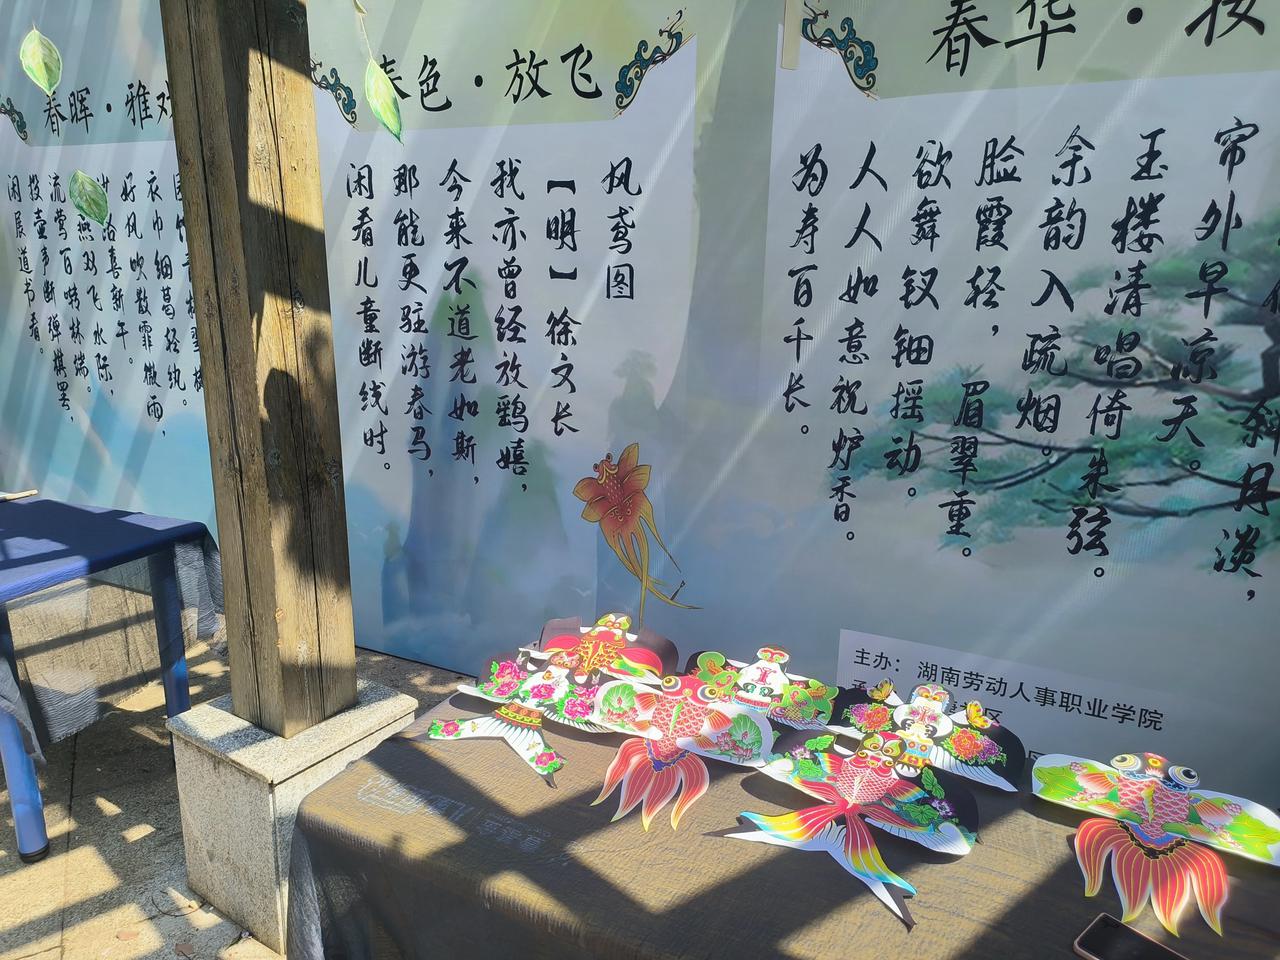 春晖·雅
衣巾细葛轻纨。
好风吹散霏微雨，
路喜新
燕双飞水际，
流莺百啭林端。
投壶声断弹棋罢，
闲展道书看。
色·放飞
风鸢图
【明】徐文长
我亦曾经放鹞嬉，
今来不道老如斯，
那能更驻游春马，
闲看儿童断线时。
春华·
斜月淡，
帘外早凉天。
玉楼清唱倚朱弦。
余韵入疏烟。
脸霞轻，眉翠重。
欲舞钗钿摇动。
人人如意祝炉香。
为寿百千长。
主办：湖南劳动人事职业学院
区